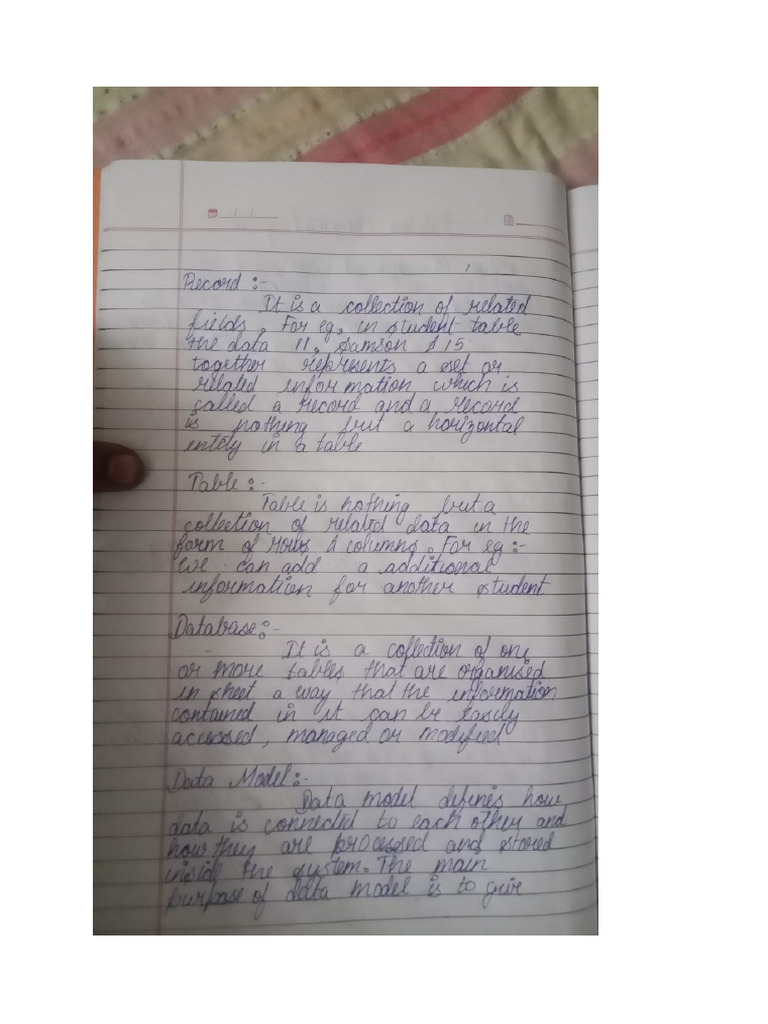 Record :-
It is a collection of related
fields. For eg, in student table
the data 11, Samson & 15
together represents a set or
related information which is
called a record and a record
is nothing but a horizontal
entity in a table
Table :-
Table is nothing but a
collection of related data in the
form of rows & columns. For eg :-
we can add a additional
information for another student
Database :-
It is a collection of one
or more tables that are organised
in sheet a way that the information
contained in it can be easily
accessed, managed or modified
Data Model :-
Data model defines how
data is connected to each other and
how they are processed and stored
inside the system. The main
purpose of data model is to give